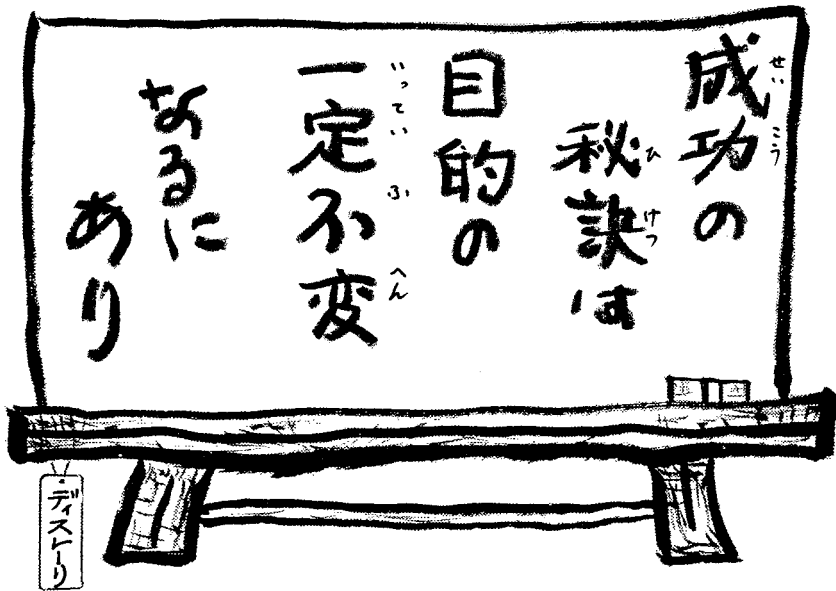 成功の
せいこう
秘訣は
ひけつ
目的の
一定不変
いっていふへん
なるに
あり
ディズレーリ